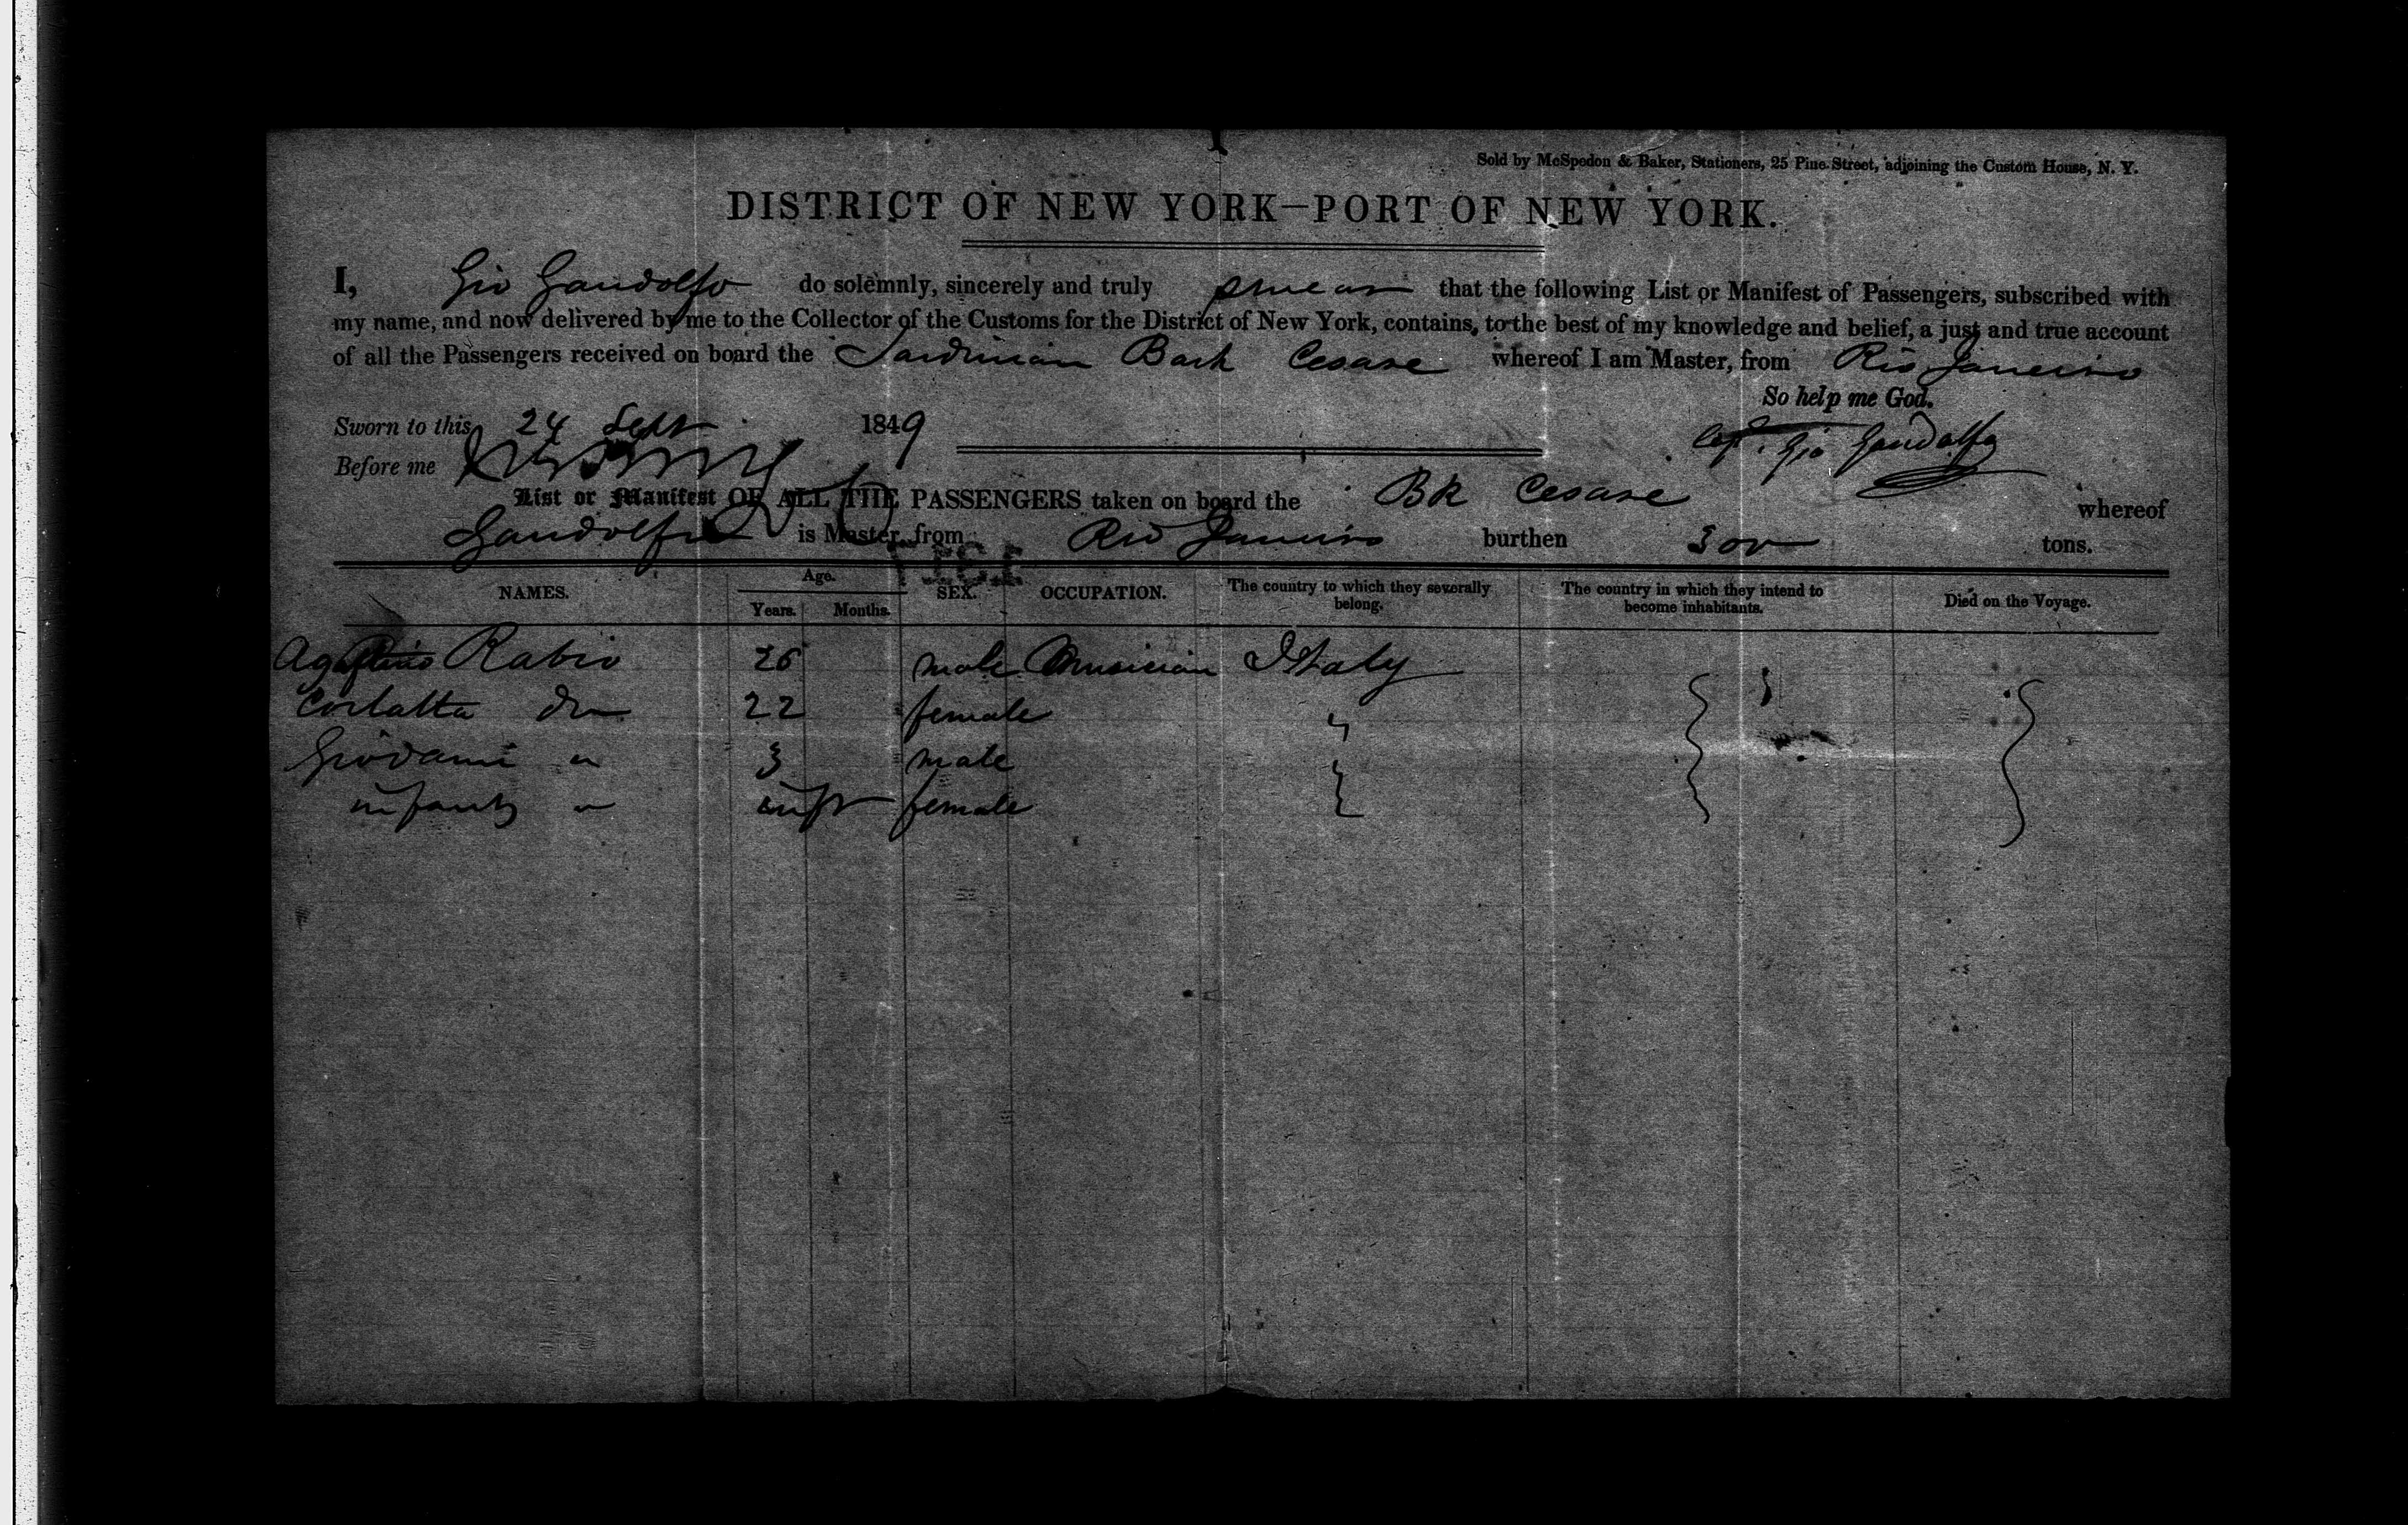 Sold by McSpedon & Baker, Stationers, 25 Pine Street, adjoining the Custom House, N. Y.
DISTRICT OF NEW YORK—PORT OF NEW YORK.
I, Gio Gandolfo do solemnly, sincerely and truly swear that the following List or Manifest of Passengers, subscribed with
my name, and now delivered by me to the Collector of the Customs for the District of New York, contains, to the best of my knowledge and belief, a just and true account
of all the Passengers received on board the Sardinian Bark Cesare whereof I am Master, from Rio Janeiro
So help me God.
Sworn to this 24 Sept 1849
Capt. Gio Gandolfo
Before me
List or Manifest OF ALL THE PASSENGERS taken on board the Bk Cesare whereof
Gandolfo is Master, from Rio Janeiro burthen 300 tons.
NAMES. Age. Years. Months. SEX. OCCUPATION. The country to which they severally belong. The country in which they intend to become inhabitants. Died on the Voyage.
Agostino Rabio 26 male Musician Italy
do 22 female "
" 3 male
infant " inft female